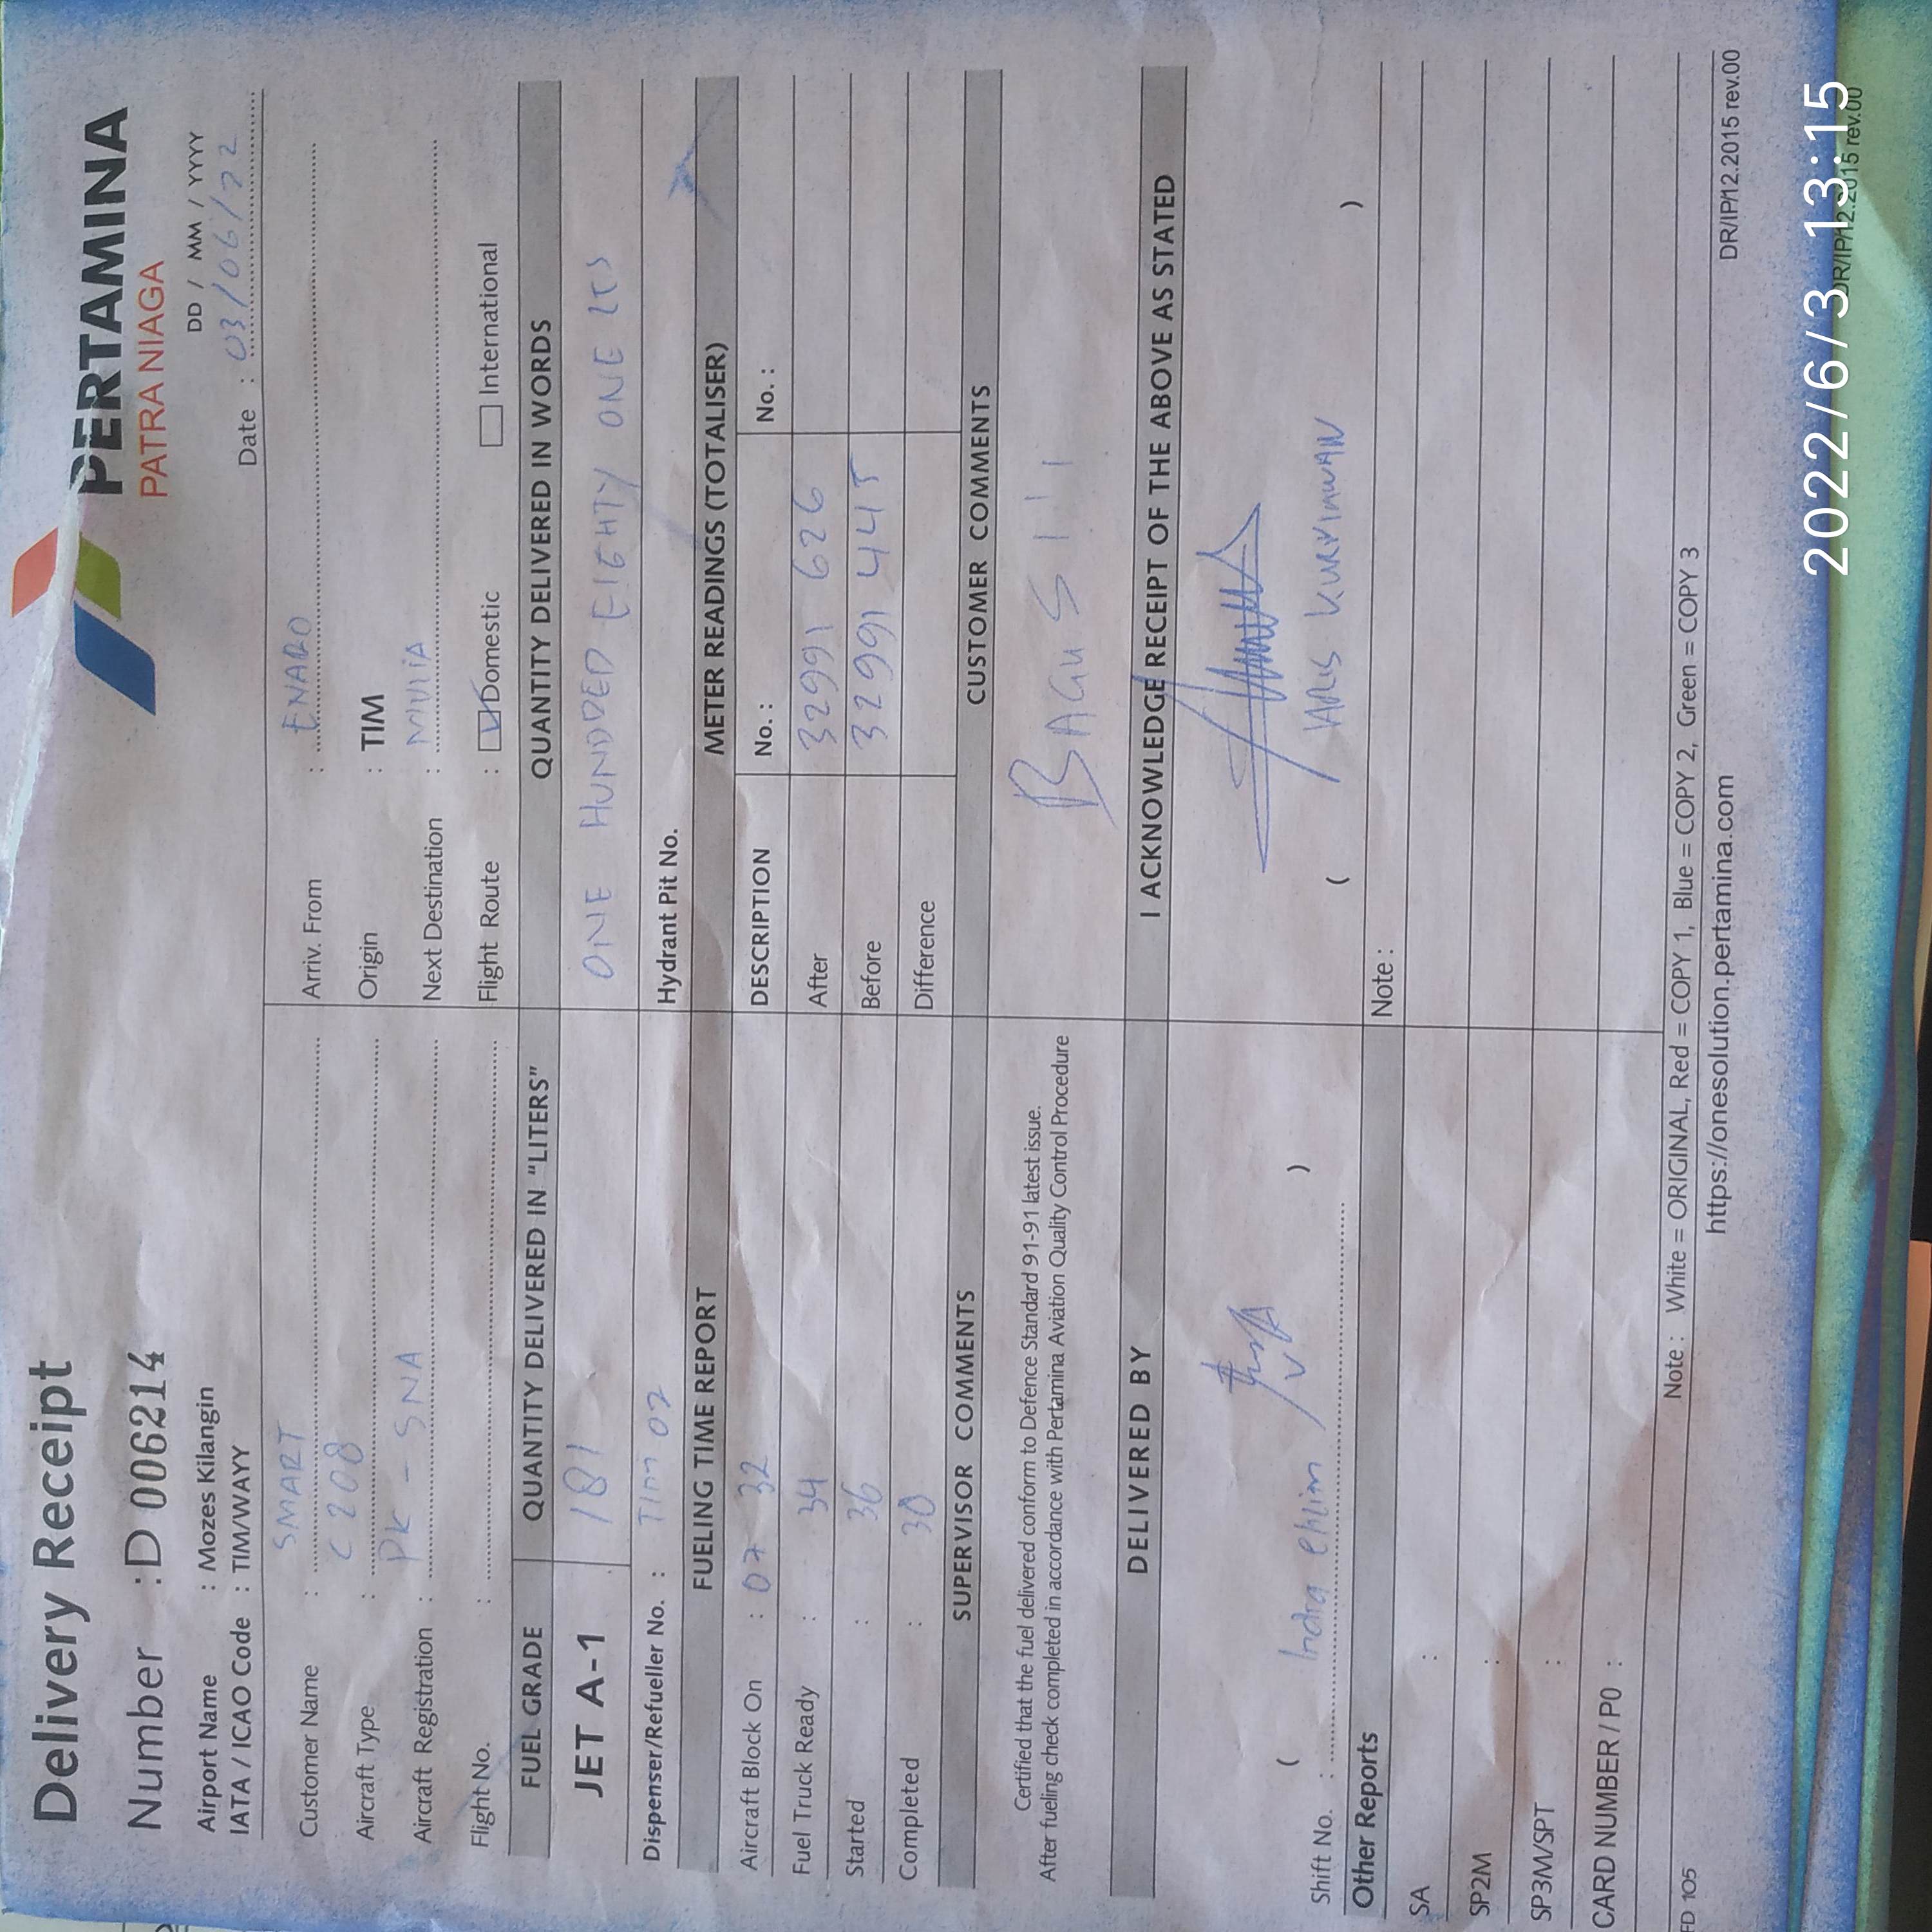 Delivery Receipt
PERTAMINA
PATRA NIAGA
Number : D 006214
Airport Name : Mozes Kilangin
DD / MM / YYYY
IATA / ICAO Code : TIM/WAYY
Date : 03/06/22
Customer Name : SMART
Arriv. From : ENARO
Aircraft Type : C 208
Origin : TIM
Aircraft Registration : PK - SNA
Next Destination :
Flight No. :
Flight Route : Domestic International
FUEL GRADE QUANTITY DELIVERED IN "LITERS" QUANTITY DELIVERED IN WORDS
JET A-1 181 ONE HUNDDED EIGHTY ONE LTS
Dispenser/Refueller No. : TIM 02
Hydrant Pit No.
FUELING TIME REPORT METER READINGS (TOTALISER)
Aircraft Block On : 07 32
DESCRIPTION No. : No. :
Fuel Truck Ready : 34
After 32991 626
Started : 36
Before 32991 445
Completed : 30
Difference
SUPERVISOR COMMENTS CUSTOMER COMMENTS
Certified that the fuel delivered conform to Defence Standard 91-91 latest issue.
After fueling check completed in accordance with Pertamina Aviation Quality Control Procedure
BAGUS !!
DELIVERED BY I ACKNOWLEDGE RECEIPT OF THE ABOVE AS STATED
( Indra )
( KURNIAWAN )
Shift No. :
Other Reports
Note :
SA :
SP2M :
SP3M/SPT :
CARD NUMBER / PO :
FD 105
Note : White = ORIGINAL, Red = COPY 1, Blue = COPY 2, Green = COPY 3
https://onesolution.pertamina.com
DR/IP/12.2015 rev.00
DR/IP/12.2015 rev.00
2022/6/3 13:15